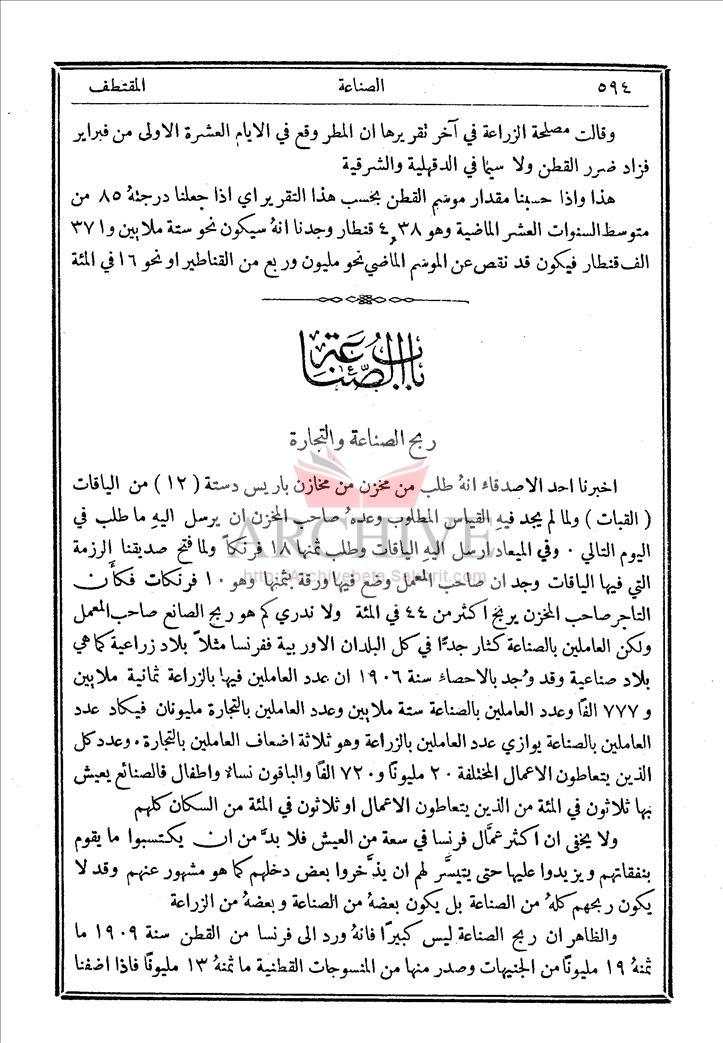 ٥٩٤ الصناعة المقتطف
وقالت مصلحة الزراعة في آخر تقريرها ان المطر وقع في الايام العشرة الاولى من فبراير
فزاد ضرر القطن ولا سيما في الدقهلية والشرقية
هذا واذا حسبنا مقدار موسم القطن بحسب هذا التقرير اي اذا جعلنا درجتهُ ٨٥ من
متوسط السنوات العشر الماضية وهو ٤٫٣٨ قنطار وجدنا انهُ سيكون نحو ستة ملايين و٣٧١
الف قنطار فيكون قد نقص عن الموسم الماضي نحو مليون وربع من القناطير او نحو ١٦ في المئة
باب الصناعة
ربح الصناعة والتجارة
اخبرنا احد الاصدقاء انهُ طلب من مخزن من مخازن باريس دستة (١٢) من الياقات
(القبات) ولما لم يجد فيهِ القياس المطلوب وعدهُ صاحب المخزن ان يرسل اليهِ ما طلب في
اليوم التالي ٠ وفي الميعاد ارسل اليهِ الياقات وطلب ثمنها ١٨ فرنكاً ولما فتح صديقنا الرزمة
التي فيها الياقات وجد ان صاحب المعمل وضع فيها ورقة بثمنها وهو ١٠ فرنكات فكأن
التاجر صاحب المخزن يربح اكثر من ٤٤ في المئة ولا ندري كم هو ربح الصانع صاحب المعمل
ولكن العاملين بالصناعة كثار جدًّا في كل البلدان الاوربية ففرنسا مثلاً بلاد زراعية كما هي
بلاد صناعية وقد وُجد بالاحصاء سنة ١٩٠٦ ان عدد العاملين فيها بالزراعة ثمانية ملايين
و٧٧٧ الفًا وعدد العاملين بالصناعة ستة ملايين وعدد العاملين بالتجارة مليونان فيكاد عدد
العاملين بالصناعة يوازي عدد العاملين بالزراعة وهو ثلاثة اضعاف العاملين بالتجارة ٠ وعدد كل
الذين يتعاطون الاعمال المختلفة ٢٠ مليونًا و٧٢٠ الفًا والباقون نساء واطفال فالصنائع يعيش
بها ثلاثون في المئة من الذين يتعاطون الاعمال او ثلاثون في المئة من السكان كلهم
ولا يخفى ان اكثر عمَّال فرنسا في سعة من العيش فلا بدَّ من ان يكتسبوا ما يقوم
بنفقاتهم ويزيدوا عليها حتى يتيسَّر لهم ان يذَّخروا بعض دخلهم كما هو مشهور عنهم وقد لا
يكون ربحهم كلهُ من الصناعة بل يكون بعضهُ من الصناعة وبعضهُ من الزراعة
والظاهر ان ربح الصناعة ليس كبيرًا فانهُ ورد الى فرنسا من القطن سنة ١٩٠٩ ما
ثمنهُ ١٩ مليونًا من الجنيهات وصدر منها من المنسوجات القطنية ما ثمنهُ ١٣ مليونًا فاذا اضفنا
ARCHIVE
http://Archivebeta.Sakhrit.com